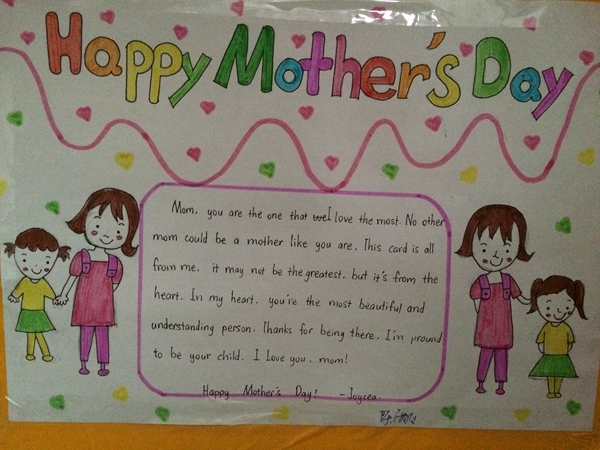 Happy Mother's Day
Mom, you are the one that we I love the most. No other
mom could be a mother like you are. This card is all
from me. it may not be the greatest. but it's from the
heart. In my heart, you're the most beautiful and
understanding person. Thanks for being there. I'm pround
to be your child. I love you, mom!
Happy Mother's Day! - Joycea